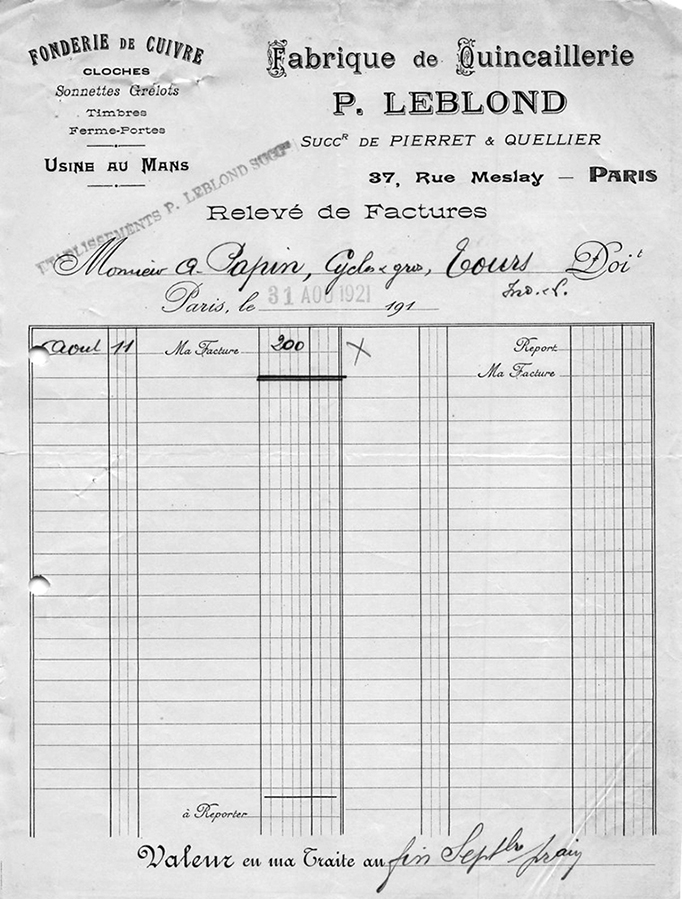 FONDERIE DE CUIVRE
CLOCHES
Sonnettes Grélots
Timbres
Ferme-Portes
USINE AU MANS
Fabrique de Quincaillerie
P. LEBLOND
SUCCR DE PIERRET & QUELLIER
37, Rue Meslay — PARIS
ETABLISSEMENTS P. LEBLOND SUCCR
Relevé de Factures
Monsieur A. Papin, Cycles gros, Tours Doit
Paris, le 31 AOU 1921 191
Aout 11 Ma Facture 200 X
Report
Ma Facture
à Reporter
Valeur en ma Traite au fin Septbre prain